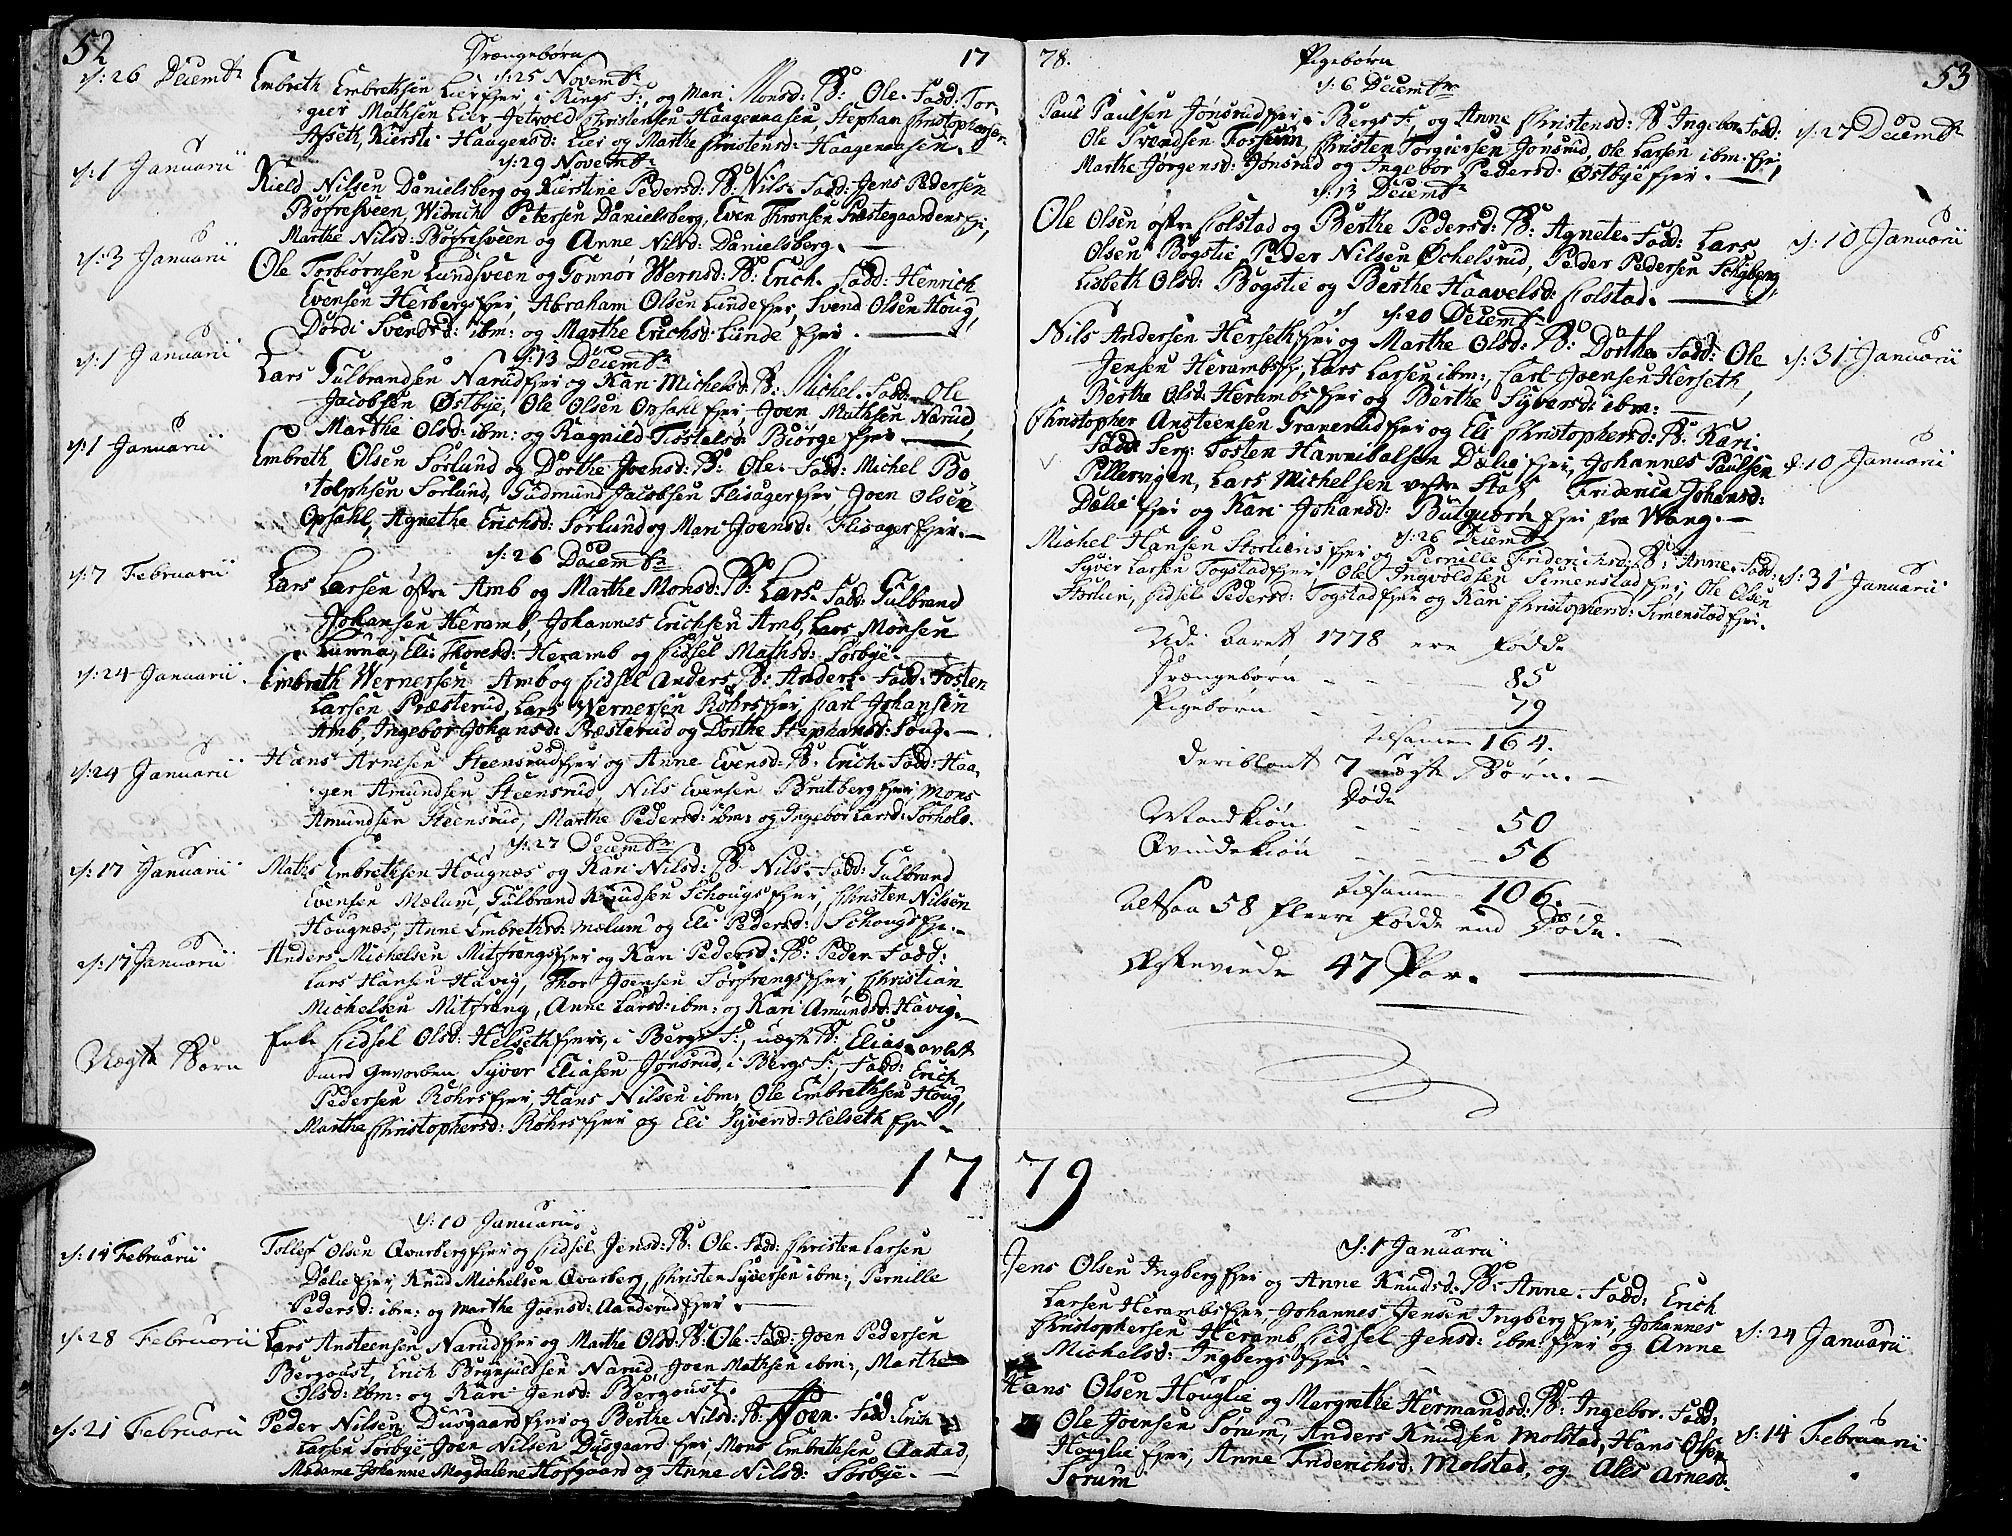 52
Drængebørn
17
d: 26 Decembr
d: 25 Novembr
Embreth Embrethsen Lier fjer i Rings S:, og Mari Monsd: B: Ole. Fadd: Tor-
gier Mathsen Lier, Christensen Haagenaasen, Stephan Christophersen
Afseth, Kiersti Haagensd: Lier og Marthe Christensd: Haagenaasen.
d: 29 Novembr
d: 1 Januarii
Kield Nilsen Danielsberg og Kierstine Pedersd: B: Nils. Fadd: Jens Pedersen
Bøfresveen, Widrich Petersen Danielsberg, Even Thronsen Præstegaardens fje,
Marthe Nilsd: Bøfresveen og Anne Nilsd: Danielsberg.
d: 3 Januarii
Ole Torbiørnsen Lundsveen og Gonnor Wernsd: B: Erich. Fadd: Henrich
Evensen Herbergs fjer, Abraham Olsen Lunde fjer, Svend Olsen Houg,
Dordi Svendsd: ibm: og Marthe Erichsd: Lunde fjer.
d: 13 Decembr
d: 1 Januarii
Lars Gulbrandsen Narud fjer og Kari Michelsd: B: Michel. Fadd: Ole
Jacobsen Østbye, Ole Olsen Opsahl fjer, Joen Mathsen Narud,
Marthe Olsd: ibm: og Ragnild Biørge fjer.
d: 1 Januarii
Embreth Olsen Sorlund og Dorthe Joensd: B: Ole. Fadd: Michel Bo-
tolphsen Sorlund, Gudmund Jacobsen Flisager fjer, Joen Olsen
Opsahl, Agnethe Erichsd: Sorlund og Mari Joensd: Flisager fjer.
d: 26 Decembr
d: 7 Februarii
Lars Larsen østre Amb og Marthe Monsd: B: Lars. Fadd: Gulbrand
Johansen Heramb, Johannes Erichsen Amb, Lars Monsen
Lunna, Eli Thoresd: Heramb og Cidsel Mathsd: Sorbye.
d: 24 Januarii
Embreth Wernersen Amb og Cidsel Anders B: Anders. Fadd: Tosten
Larsen Præsterud, Lars Wernersen Rohrs fjer, Carl Johansen
Amb, Ingebor Johansd: Præsterud og Dorthe Stephansd: Houg.
d: 24 Januarii
Hans Arnesen Steensrud fjer og Anne Evensd: B: Erich. Fadd: Haa-
gen Amundsen Steensrud, Nils Evensen Bratberg fjer, Mons
Amundsen Steensrud, Marthe Pedersd: ibm: og Ingebor Larsd: Sorhol.
d: 27 Decembr
d: 17 Januarii
Maths Embrethsen Hougnæs og Kari Nilsd: B: Nils. Fadd: Gulbrand
Evensen Mælum, Gulbrand Knudsen Schougs fjer, Christen Nilsen
Hougnæs, Anne Embrethsd: Mælum og Eli Pedersd: Schougs fje.
d: 17 Januarii
Anders Michelsen Mitfrengs fjer og Kari Pedersd: B: Peder Fadd:
Lars Hansen Havig, Thor Joensen Sorfrengs fjer, Christian
Michelsen Mitfreng, Anne Larsd: ibm: og Kari Amundsd: Havig.
Uægte Børn
Cidsel Olsd: Helseth fjer, i Bergs S:, uægte B: Elias avlet
med Syver Eliasen Jonsrud, i Bergs S:, Fadd: Erich
Pedersen Rohrs fjer, Hans Nilsen ibm:, Ole Embrethsen Houg,
Marthe Christophersd: Rohrs fjer og Eli Syversd: Helseth fje.
17
d: 10 Januarii
d: 14 Februarii
Tollef Olsen Qvarberg fjer og Cidsel Jensd: B: Ole. Fadd: Christen Larsen
Dælie fjer, Knud Michelsen Qvarberg, Christen Syversen ibm:, Pernille
Pedersd: ibm: og Marthe Joensd: Aanderud fjer.
d: 28 Februarii
Lars Ansteensen Narud fjer og Marthe Olsd: B: Ole. Fadd: Joen Pedersen
Bergoust, Erich Brynjuldsen Narud, Joen Mathsen ibm:, Marthe
Olsd: ibm: og Kari Jensd: Bergoust.
d: 21 Februarii
Peder Nilsen Dusgaard fjer og Berthe Nilsd: B: Joen. Fadd: Erich
Larsen Sorbye, Joen Nilsen Dysgaard fjer, Mons Embrethsen Aastad,
Madame Johanne Magdalene Hofgaard og Anne Nilsd: Sorbye.
78.
Pigebørn
53
d: 6 Decembr
Paul Paulsen Jønsrud fjer i Bergs S:, og Anne Christensd: B: Ingebor. Fadd:
d: 27 Decembr
Ole Svendsen Torshuun, Christen Torgiersen Jonsrud, Ole Larsen ibm: fje,
Marthe Jorgensd: Jonsrud og Ingebor Pedersd: Østbye fjer.
d: 13 Decembr
Ole Olsen østre Colstad og Berthe Pedersd: B: Agnete. Fadd: Lars
d: 10 Januarii
Olsen Bogstie, Peder Nilsen Øchelsrud, Peder Pedersen Schyberg,
Lisbeth Olsd: Bogstie og Berthe Haavelsd: Colstad.
d: 20 Decembr
Nils Andersen Herseth fjer og Marthe Olsd: B: Dorthe. Fadd: Ole
d: 31 Januarii
Jensen Herambs fj, Lars Larsen ibm:, Carl Joensen Herseth,
Berthe Olsd: Herambs fjer og Berthe Syversd: ibm:
Christopher Ansteensen Granerud fjer og Eli Christophersd: B: Kari.
Fadd: Serg: Tosten Hannibalsen Dælie fjer, Johannes Paulsen
d: 10 Januarii
Pillervigen, Lars Michelsen vestre Friderica Johansd:
Dælie fjer og Kari Johansd: Bulguborch fjer fra Wang.
d: 26 Decembr
Michel Hansen Storlieris fjer og Pernille Friderichsd: B: Anne. Fadd:
Syver Larsen Togstad fjer, Ole Ingvoldsen Simenstad fjer, Ole Olsen
d: 31 Januarii
Storlien, Cidsel Pedersd: Togstad fjer og Kari Christophersd: Simenstad fjer.
Udi Aaret 1778 ere Fødde
Drængebørn - - - 85
Pigebørn - - - 79
tilsamen 164.
deriblant 7 uægte Børn.
Døde
Mandkiøn - - - 50
Qvindekiøn - - - 56
tilsamen 106.
Altsaa 58 fleere Fødde end Døde.
Ægteviede 47 Par.
79
d: 1 Januarii
Jens Olsen Ingberg fjer og Anne Knudsd: B: Anne. Fadd: Erich
Larsen Herambs fjer, Johannes Jensen Ingberg fjer, Johannes
Christophersen Heramb, Cidsel Jensd: ibm: fjer og Anne
d: 24 Januarii
Michelsd: Ingbergs fjer.
Hans Olsen Houglie og Margrethe Hermandsd: B: Ingebor. Fadd:
Ole Joensen Sørum, Anders Knudsen Molstad, Hans Olsen
d: 14 Februarii
Houglie fjer, Anne Friderichsd: Molstad, og Ales Arnesd:
Sorum